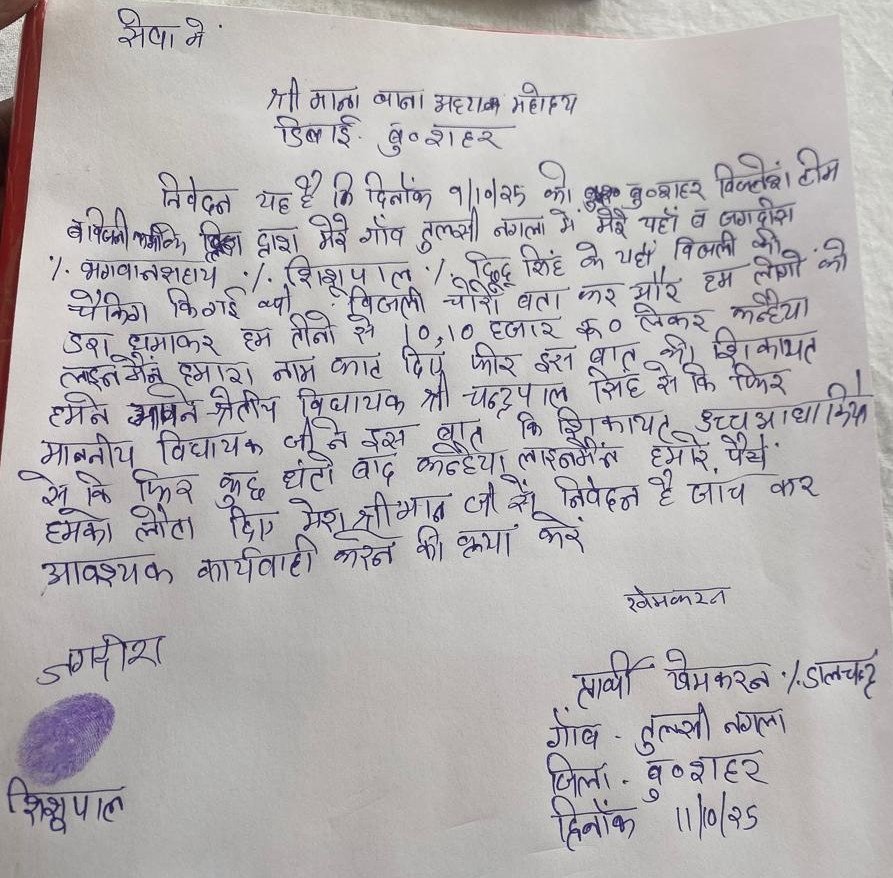 सेवा में
श्री मान थाना अध्यक्ष महोदय
डिबाई. बु०शहर
निवेदन यह है कि दिनाँक 9/10/25 को बु०शहर विजलेंश टीम
व बिजली द्वारा मेरे गाँव तुलसी नगला में मेरे यहाँ व जगदीश
%. भगवानसहाय %. शिशुपाल %. सिंह के यहाँ बिजली की
चैकिंग किगई बिजली चोरी बता कर और हम लोगो को
डरा धमाकर हम तीनो से 10,10 हजार रू० लेकर कन्हैया
लाइनमैन हमारा नाम काट दिए फीर इस बात की शिकायत
हमने श्रेतीय विधायक श्री चन्द्रपाल सिंह से कि फिर
माननीय विधायक जी ने इस बात कि शिकायत उच्च
से कि फिर कुछ घंटो बाद कन्हैया लाइनमैन हमारे पैसे
हमको लौटा दिए मेरा श्रीमान जी से निवेदन है जाच कर
आवश्यक कार्यवाही करने की कृपा करें
खेमकरन
जगदीश
प्रार्थी खेमकरन %. डालचन्द्र
गाँव - तुलसी नगला
जिला - बु०शहर
शिशुपाल
दिनाँक 11/10/25